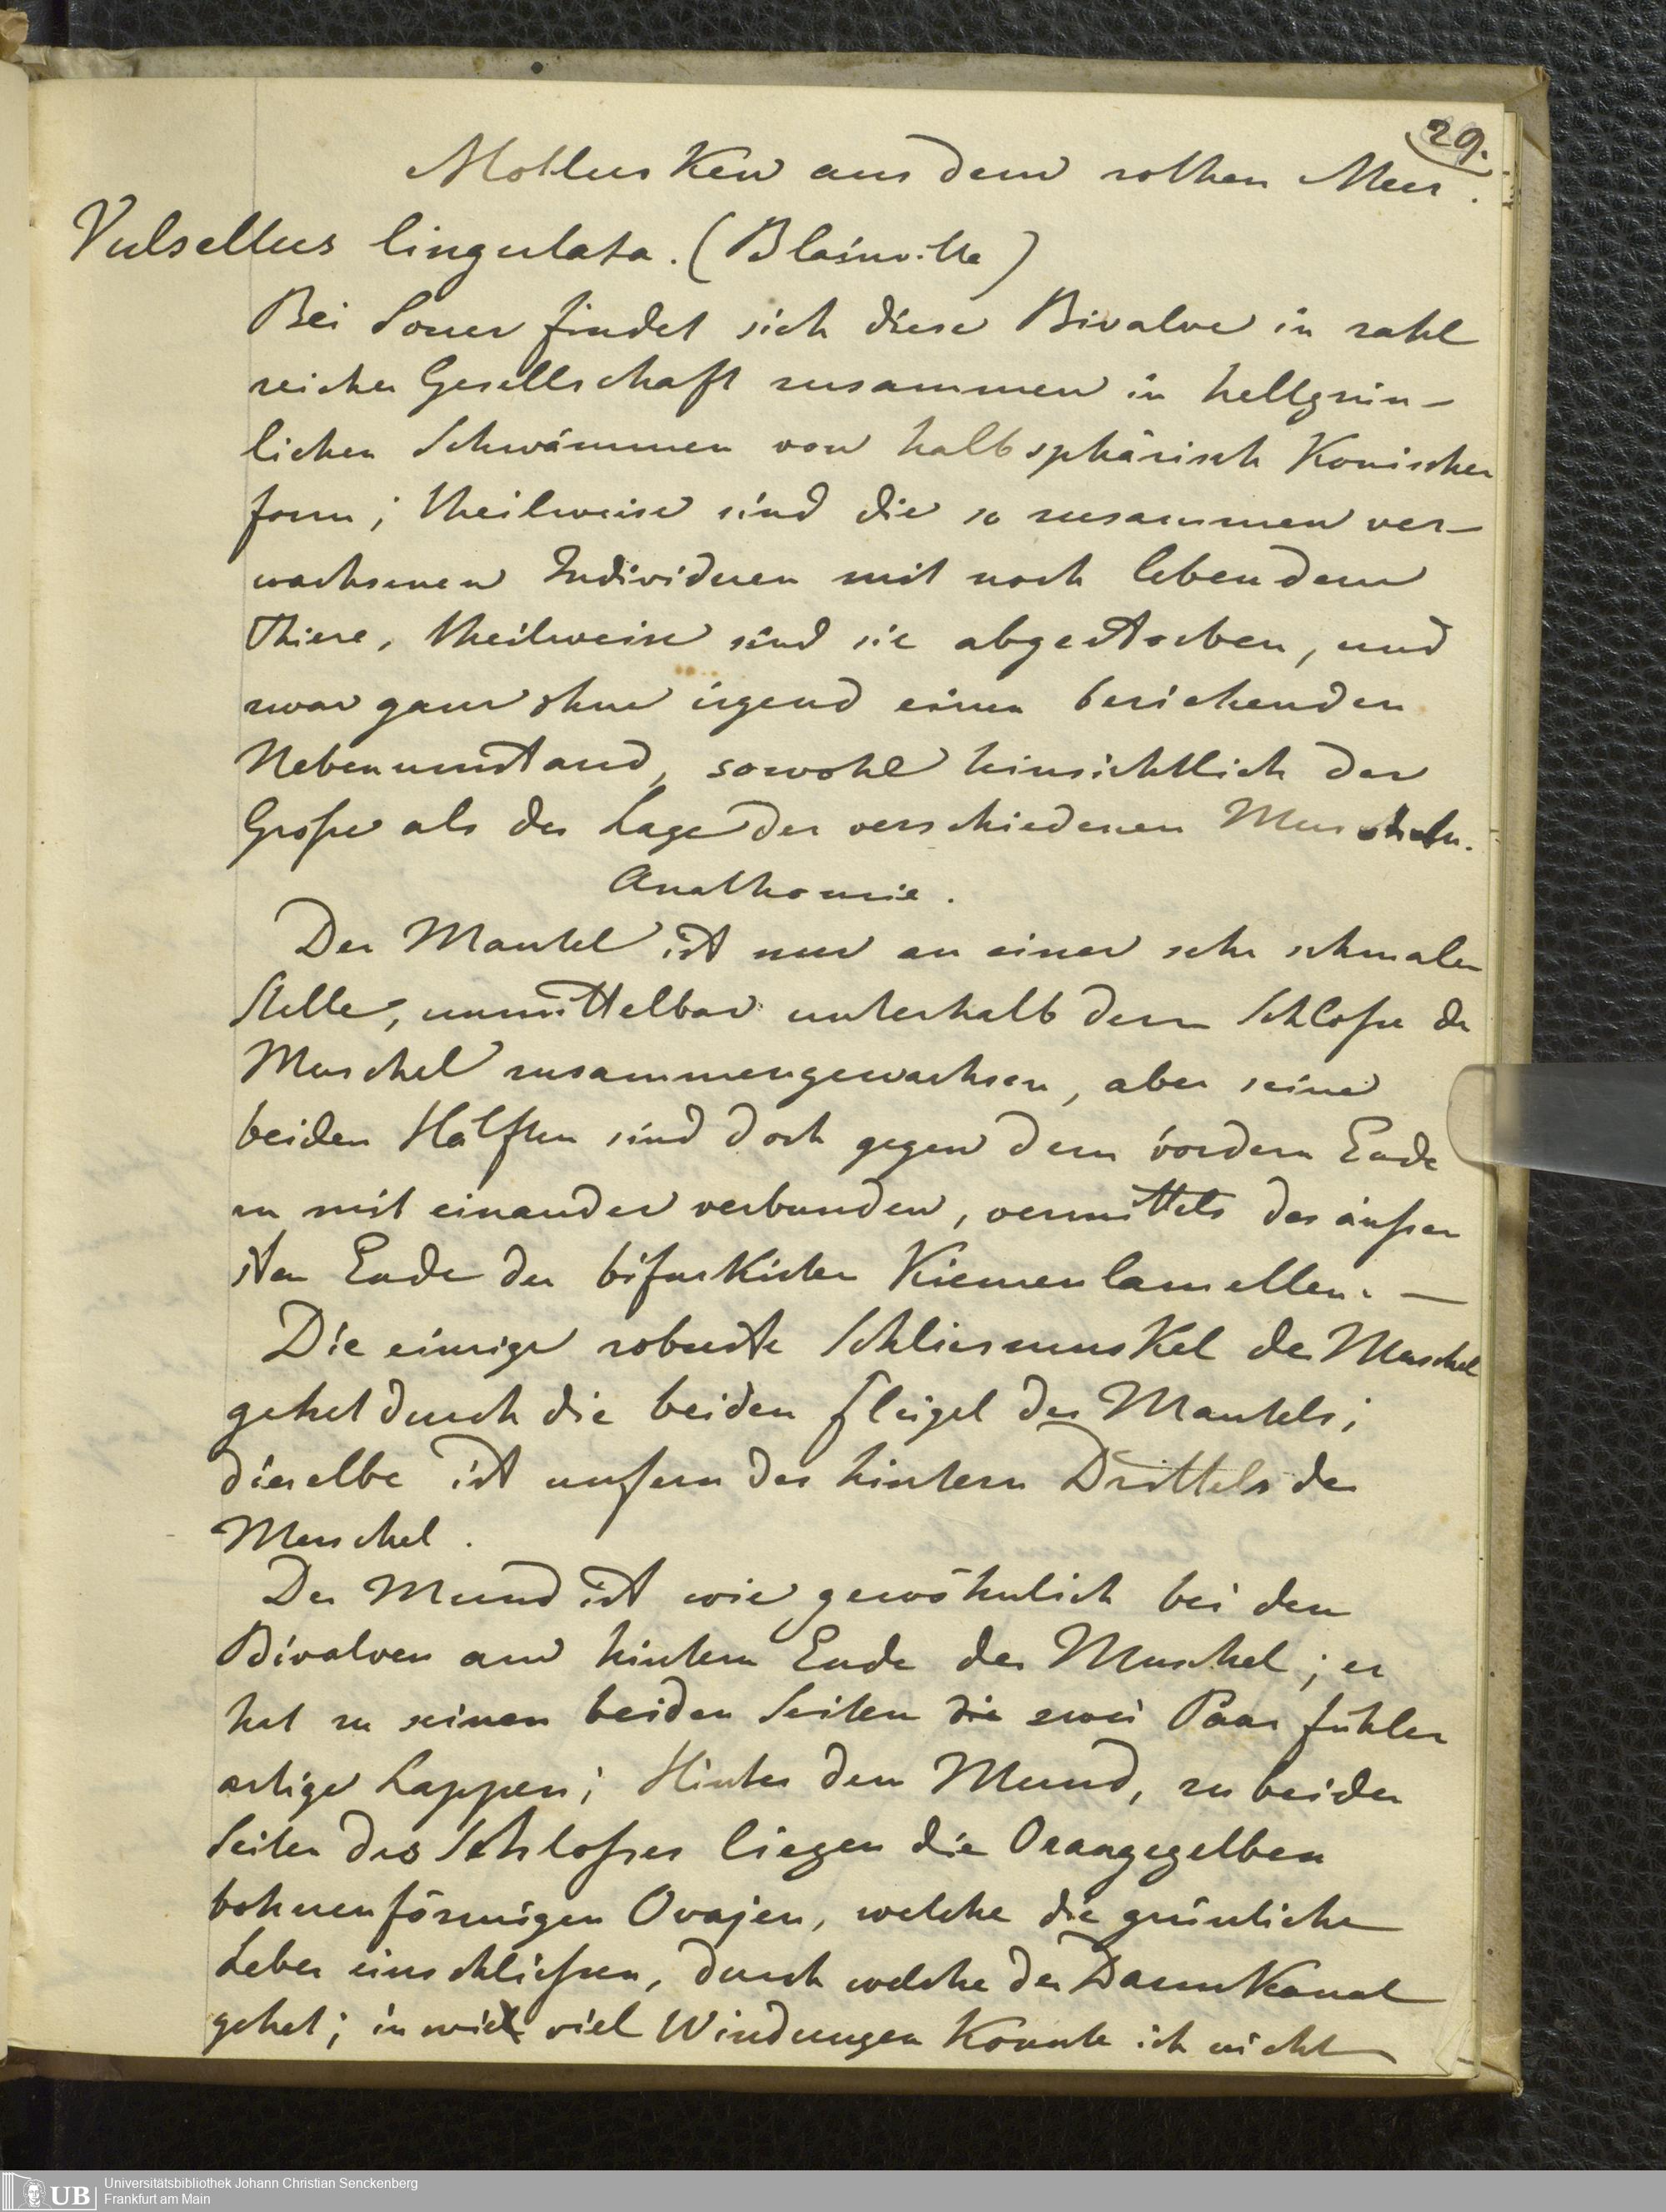 29.
Mollusken aus dem rothen Meer.
Vulsellus lingulata. (Blainville)
Bei Souer findet sich diese Bivalve in zahl
reicher Gesellschaft zusammen in hellgrün-
lichen Schwämmen von halb sphärisch Konischer
form; theilweise sind die so zusammen ver-
wachsenen Individuen mit noch lebendem
Thiere, theilweise sind sie abgestorben, und
zwar ganz ohne irgend einen beziehenden
Nebenumstand, sowohl hinsichtlich der
Großse als der Lage der verschiedenen Muscheln.
Anathomie.
Der Mantel ist nur an einer sehr schmalen
Stelle, unmittelbar unterhalb dem Schloße der
Muschel zusammengewachsen, aber seine
beiden Hälften sind doch gegen dem vordern Ende
zu mit einander verbunden, vermittels des äußer
sten Ende der bifurkirten Kiemenlamellen. —
Die einzige robuste Schliesmuskel der Muschel
gehet durch die beiden flügel des Mantels;
dieselbe ist unfern des hintern Drittels der
Muschel.
Der Mund ist wie gewöhnlich bei den
Bivalven am hintern Ende der Muschel; er
hat zu seinen beiden Seiten die zwei Paar fühler
artige Lappen; Hinter dem Mund, zu beiden
Seiten des Schloßes liegen die Orangegelben
bohnenförmigen Ovajen, welche die grünliche
Leber einschließen, durch welche der Darmkanal
gehet; in wie viel Windungen Konnte ich nicht
Universitätsbibliothek Johann Christian Senckenberg
UB Frankfurt am Main